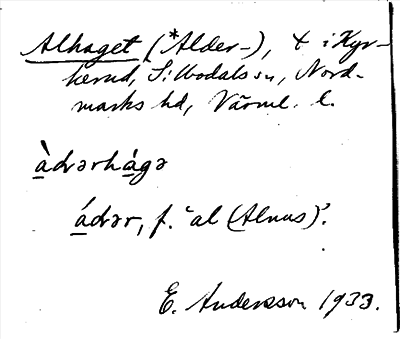 Alhaget (*Alder-), t i Kyr-
kerud, Sillbodals sn, Nord-
marks hd, Värml. l.
àdvərhágə
ádvər, f. 'al (Alnus)'.
E. Andersson 1933.